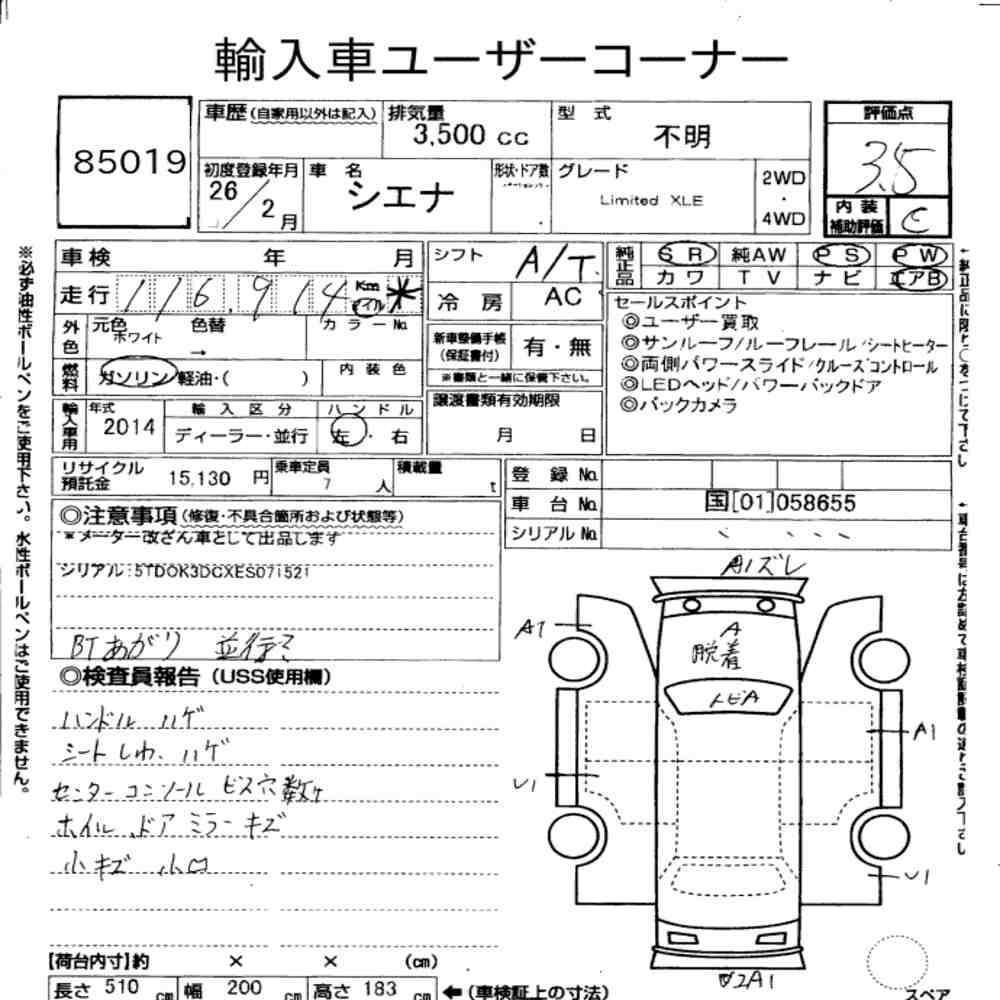 輸入車ユーザーコーナー
85019
車歴 (自家用以外は記入)
排気量 3,500 cc
型 式 不明
評価点 3.5
内装補助評価 C
初度登録年月 26/2月
車 名 シエナ
形状・ドア数
グレード Limited XLE
2WD ・ 4WD
車検 年 月
走行 116,914 Km マイル *
シフト A/T
冷 房 AC
純正品 SR 純AW PS PW
カワ TV ナビ エアB
外色 元色 ホワイト 色替 → カラーNo.
燃料 ガソリン 軽油・( )
内装色
新車整備手帳(保証書付) 有・無
※書類と一緒に保管下さい。
譲渡書類有効期限
月 日
セールスポイント
◎ユーザー買取
◎サンルーフ/ルーフレール/シートヒーター
◎両側パワースライド/クルーズコントロール
◎LEDヘッド/パワーバックドア
◎バックカメラ
輸入車用 年式 2014
輸入区分 ディーラー・並行
ハンドル 左・右
リサイクル預託金 15,130 円
乗車定員 7 人
積載量 t
登 録 No.
車 台 No. 国[01]058655
シリアルNo.
◎注意事項 (修復・不具合箇所および状態等)
*メーター改ざん車として出品します
シリアル:5TDOK3DCXES071521
BTあがり
◎検査員報告 (USS使用欄)
ハンドル ハゲ
シートしわ、ハゲ
センターコンソール ビス穴数ヶ
ホイル、ドアミラーキズ
小キズ 小凹
A1ズレ
A1
A
脱着
トビA
A1
U1
U1
2A1
【荷台内寸】約 × × (cm)
長さ 510 cm 幅 200 cm 高さ 183 cm ←(車検証上の寸法)
スペア
※必ず油性ボールペンをご使用下さい。水性ボールペンはご使用できません。